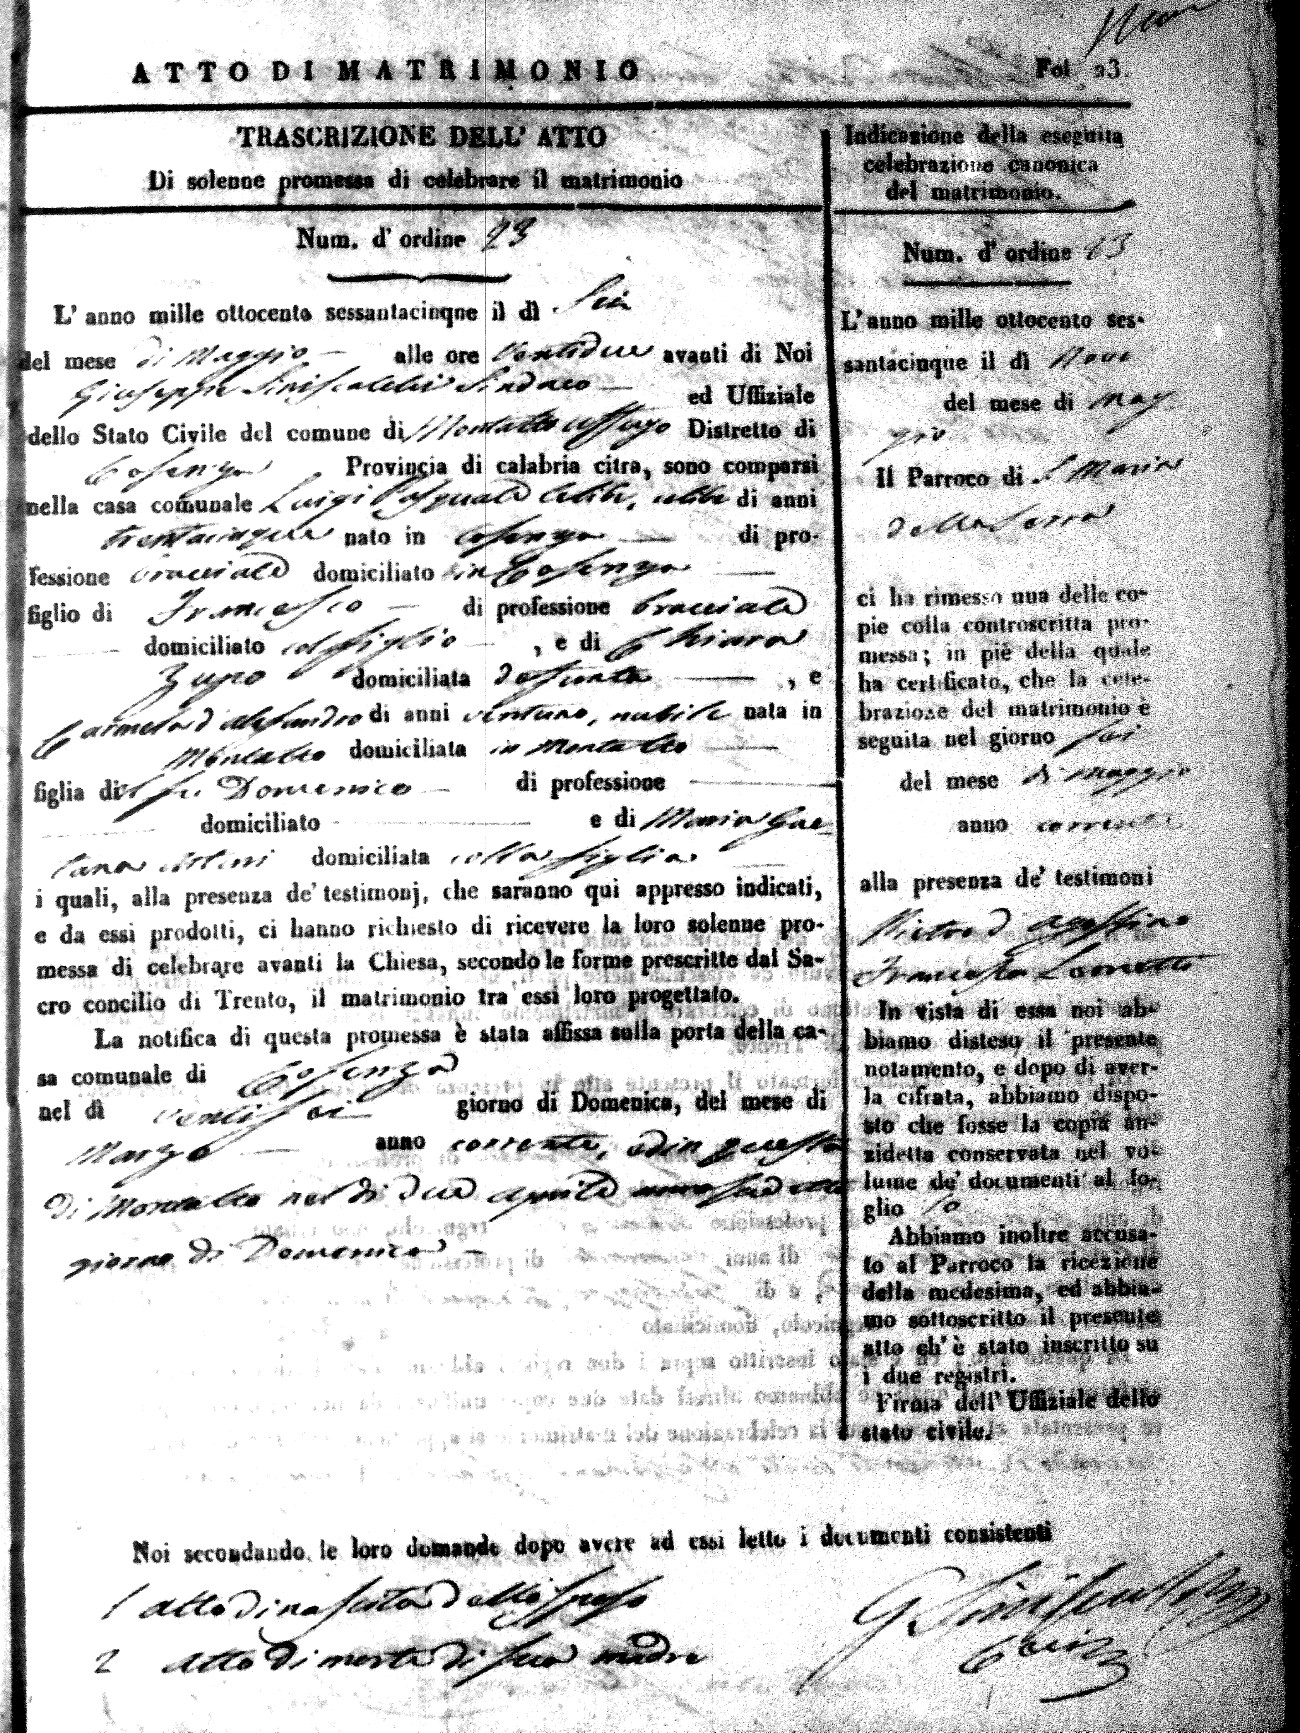 ATTO DI MATRIMONIO
Fol 23.
TRASCRIZIONE DELL' ATTO
Di solenne promessa di celebrare il matrimonio
Num. d' ordine 23
L' anno mille ottocento sessantacinque il dì Sei
del mese di Maggio alle ore ventidue avanti di Noi
Giuseppe Siniscalchi Sindaco ed Uffiziale
dello Stato Civile del comune di Montalto Uffugo Distretto di
Cosenza Provincia di calabria citra, sono comparsi
nella casa comunale Luigi Pasquale celibe di anni
trentacinque nato in Cosenza di pro-
fessione bracciale domiciliato in Cosenza
figlio di Francesco di professione bracciale
domiciliato col figlio , e di Chiara
Zupo domiciliata defunta , e
Carmela d'Alesandro di anni ventuno, nubile nata in
Montalto domiciliata in Montalto
figlia di fu Domenico di professione
domiciliato e di Maria Gae-
tana domiciliata colla figlia
i quali, alla presenza de' testimonj, che saranno qui appresso indicati,
e da essi prodotti, ci hanno richiesto di ricevere la loro solenne pro-
messa di celebrare avanti la Chiesa, secondo le forme prescritte dal Sa-
cro concilio di Trento, il matrimonio tra essi loro progettato.
La notifica di questa promessa è stata affissa sulla porta della ca-
sa comunale di Cosenza
nel dì ventisei giorno di Domenica, del mese di
Marzo anno corrente, ed in questa
di Montalto nel di due aprile
giorno di Domenica
Indicazione della eseguita
celebrazione canonica
del matrimonio.
Num. d' ordine 23
L'anno mille ottocento ses-
santacinque il dì Nove
del mese di Mag
gio
Il Parroco di S Maria
della Serra
ci ha rimesso una delle co-
pie colla controscritta pro-
messa; in piè della quale
ha certificato, che la cele-
brazione del matrimonio è
seguita nel giorno sei
del mese di Maggio
anno corrente
alla presenza de' testimoni
Pietro d'Agostino
Francesco
In vista di essa noi ab-
biamo disteso il presente
notamento, e dopo di aver-
la cifrata, abbiamo dispo-
sto che fosse la copia an-
zidetta conservata nel vo-
lume de' documenti al fo-
glio
Abbiamo inoltre accusa-
to al Parroco la ricezione
della medesima, ed abbia-
mo sottoscritto il presente
atto ch' è stato inscritto su
i due registri.
Firma dell' Uffiziale dello
stato civile.
Noi secondando le loro domande dopo avere ad essi letto i documenti consistenti
1 atto di nascita dello sposo
2 Atto di morte di sua madre
G Siniscalchi